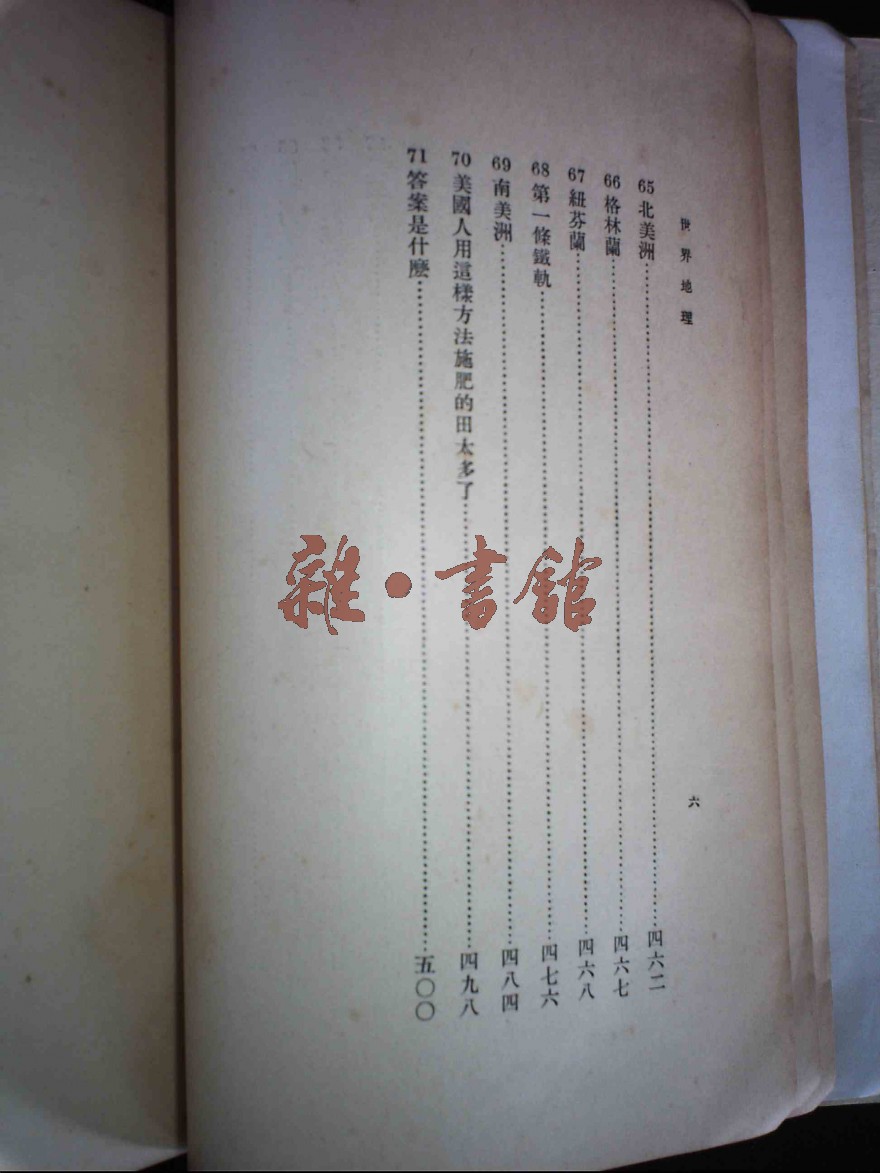 世界地理
六
65 北美洲……四六二
66 格林蘭……四六七
67 紐芬蘭……四六八
68 第一條鐵軌……四七六
69 南美洲……四八四
70 美國人用這樣方法施肥的田太多了……四九八
71 答案是什麼……五〇〇
雜·書館